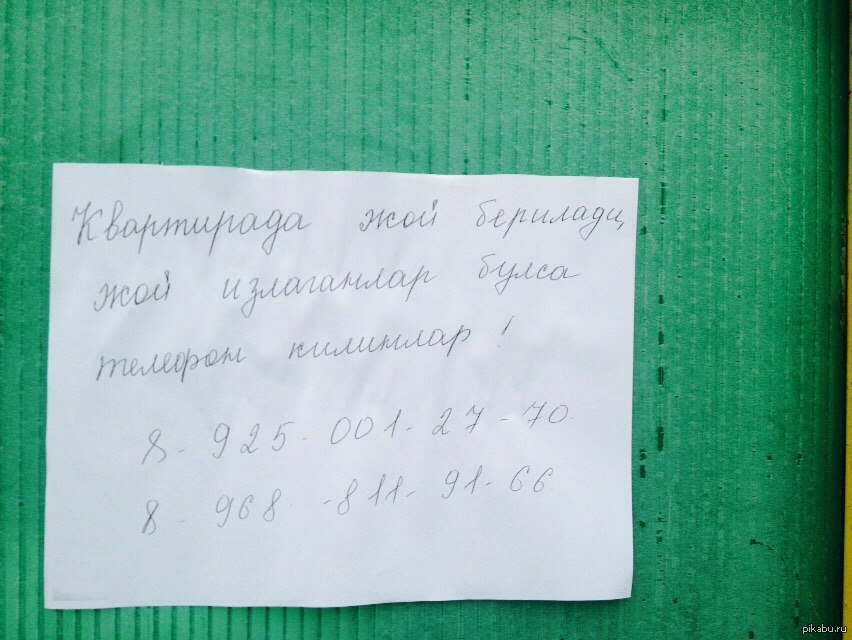 Квартирада жой берилади,
жой излаганлар булса
телефон килинлар!
8-925-001-27-70
8-968-811-91-66
pikabu.ru